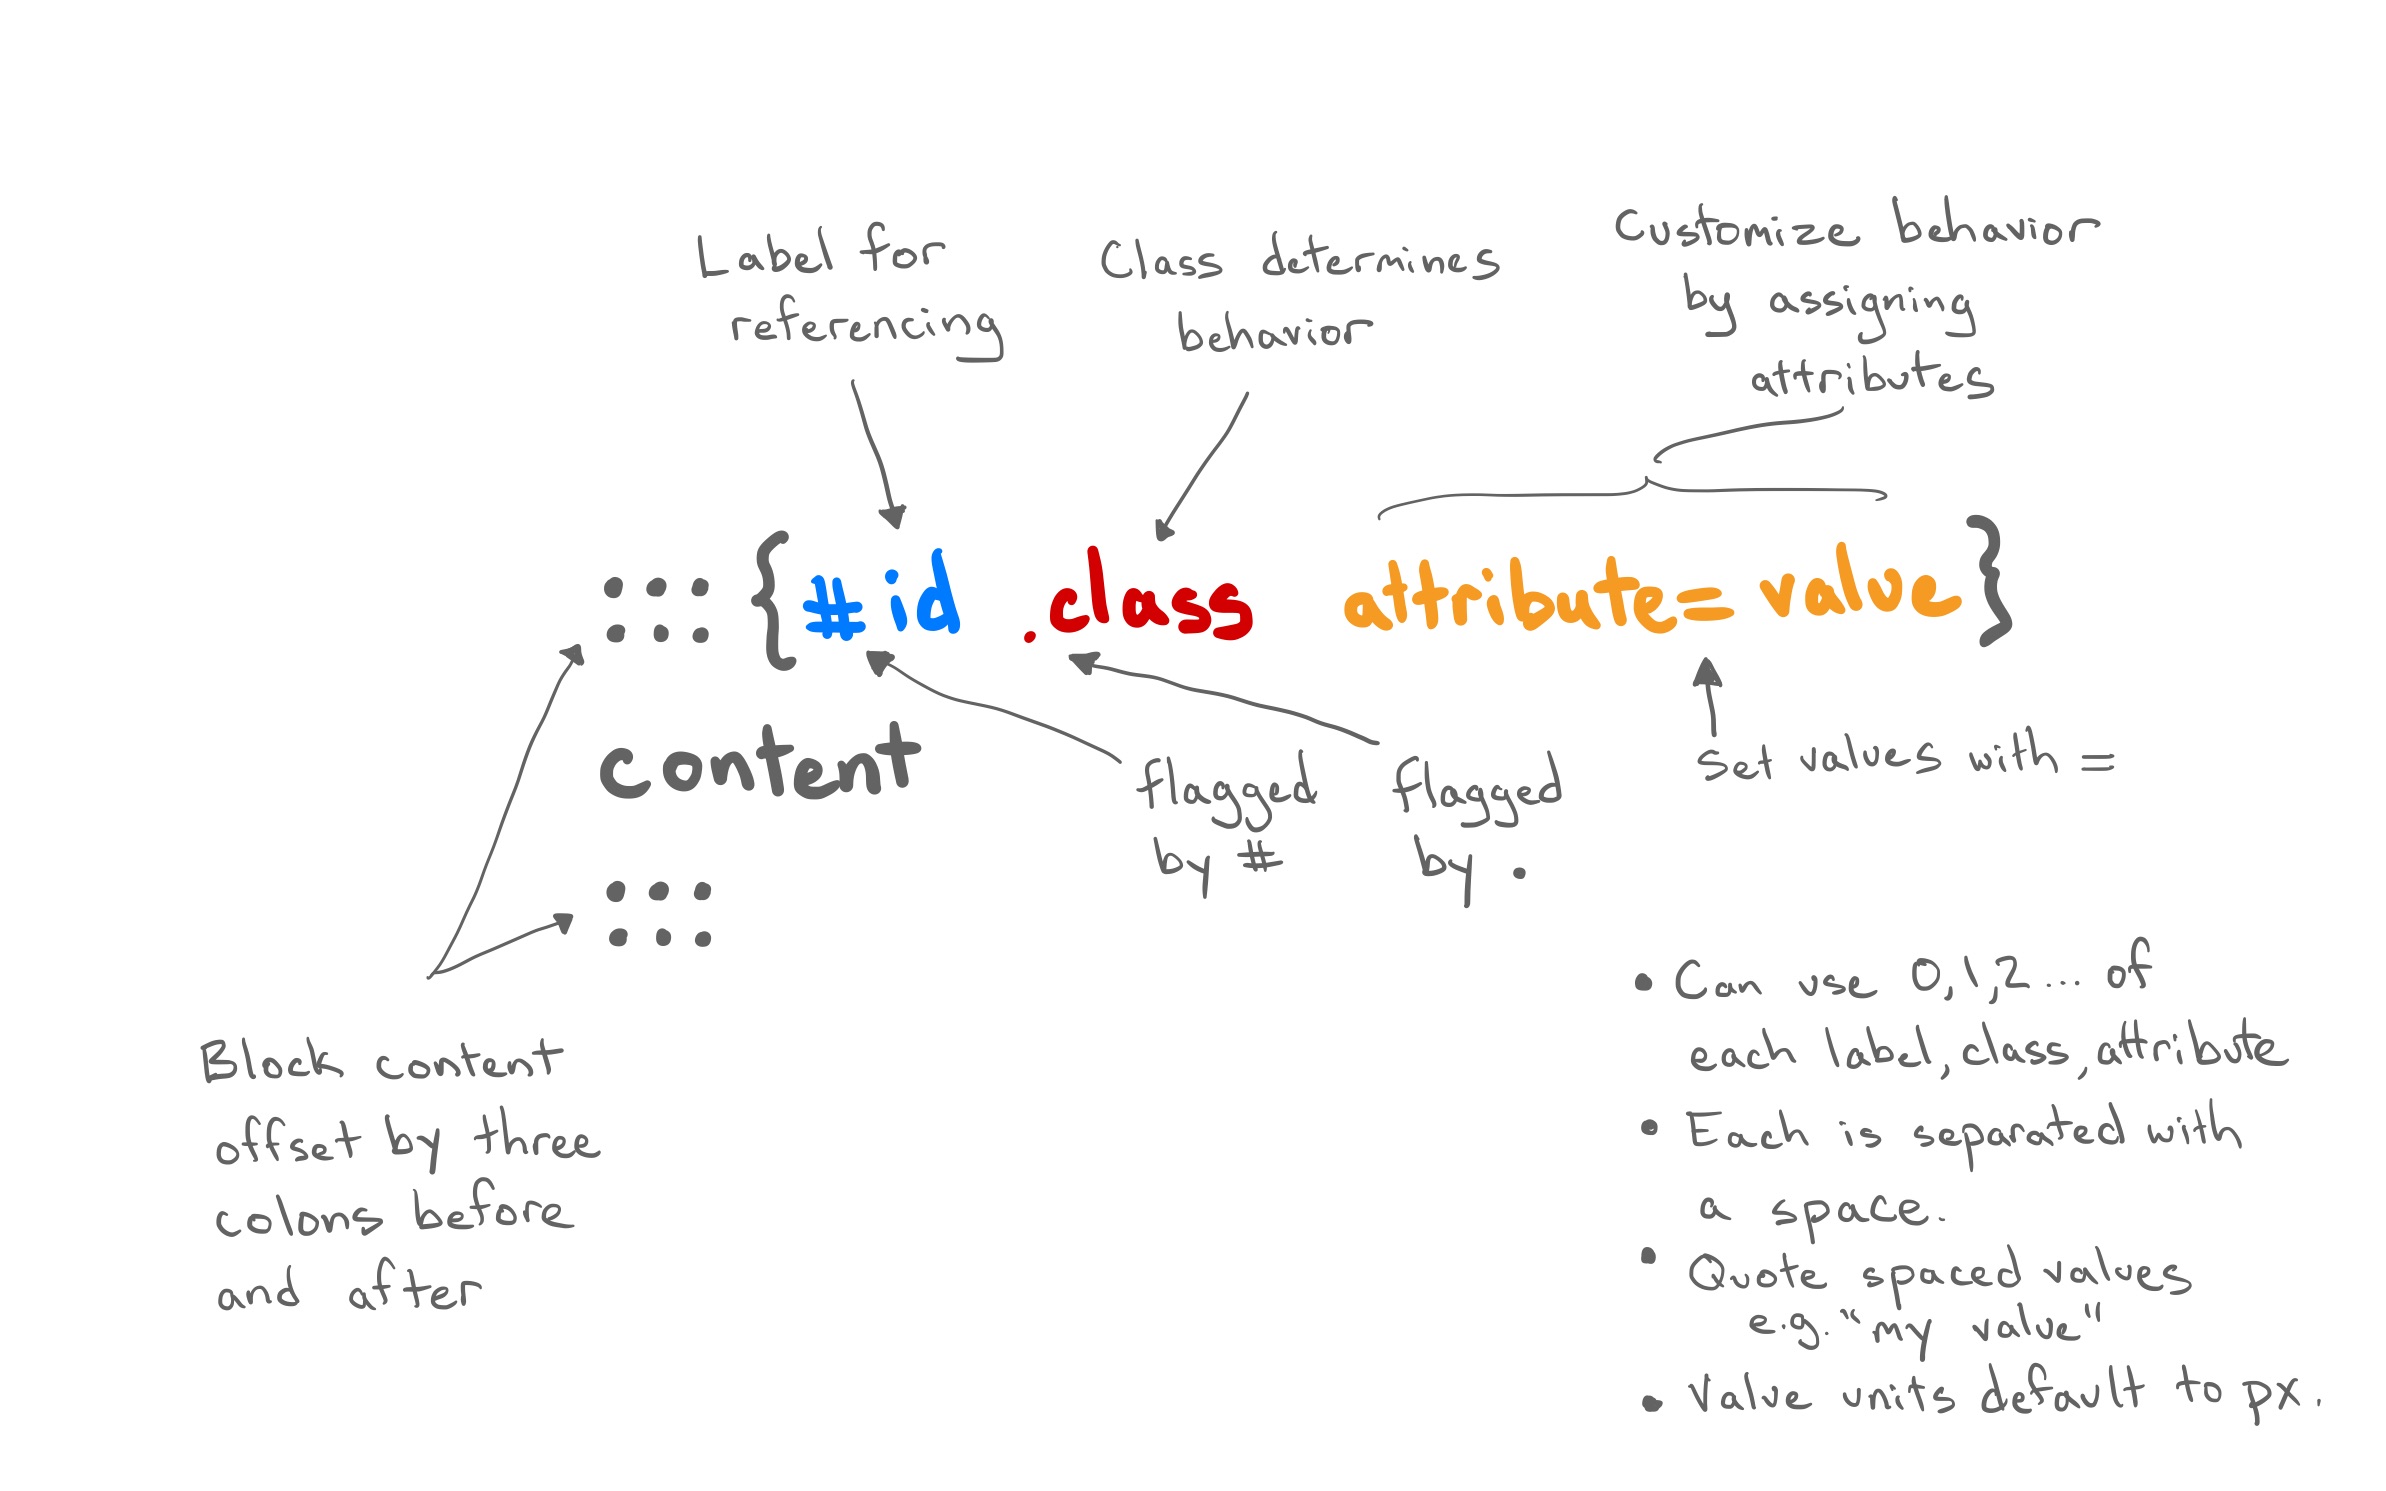 Label for
referencing
Class determines
behavior
Customize behavior
by assigning
attributes
::: {#id .class attribute=value}
content
:::
flagged
by #
flagged
by .
set values with =
Block content
offset by three
colons before
and after
• Can use 0,1,2... of
each label, class, attribute
• Each is separated with
a space.
• Quote spaced values
e.g. "my value"
• Value units default to px.